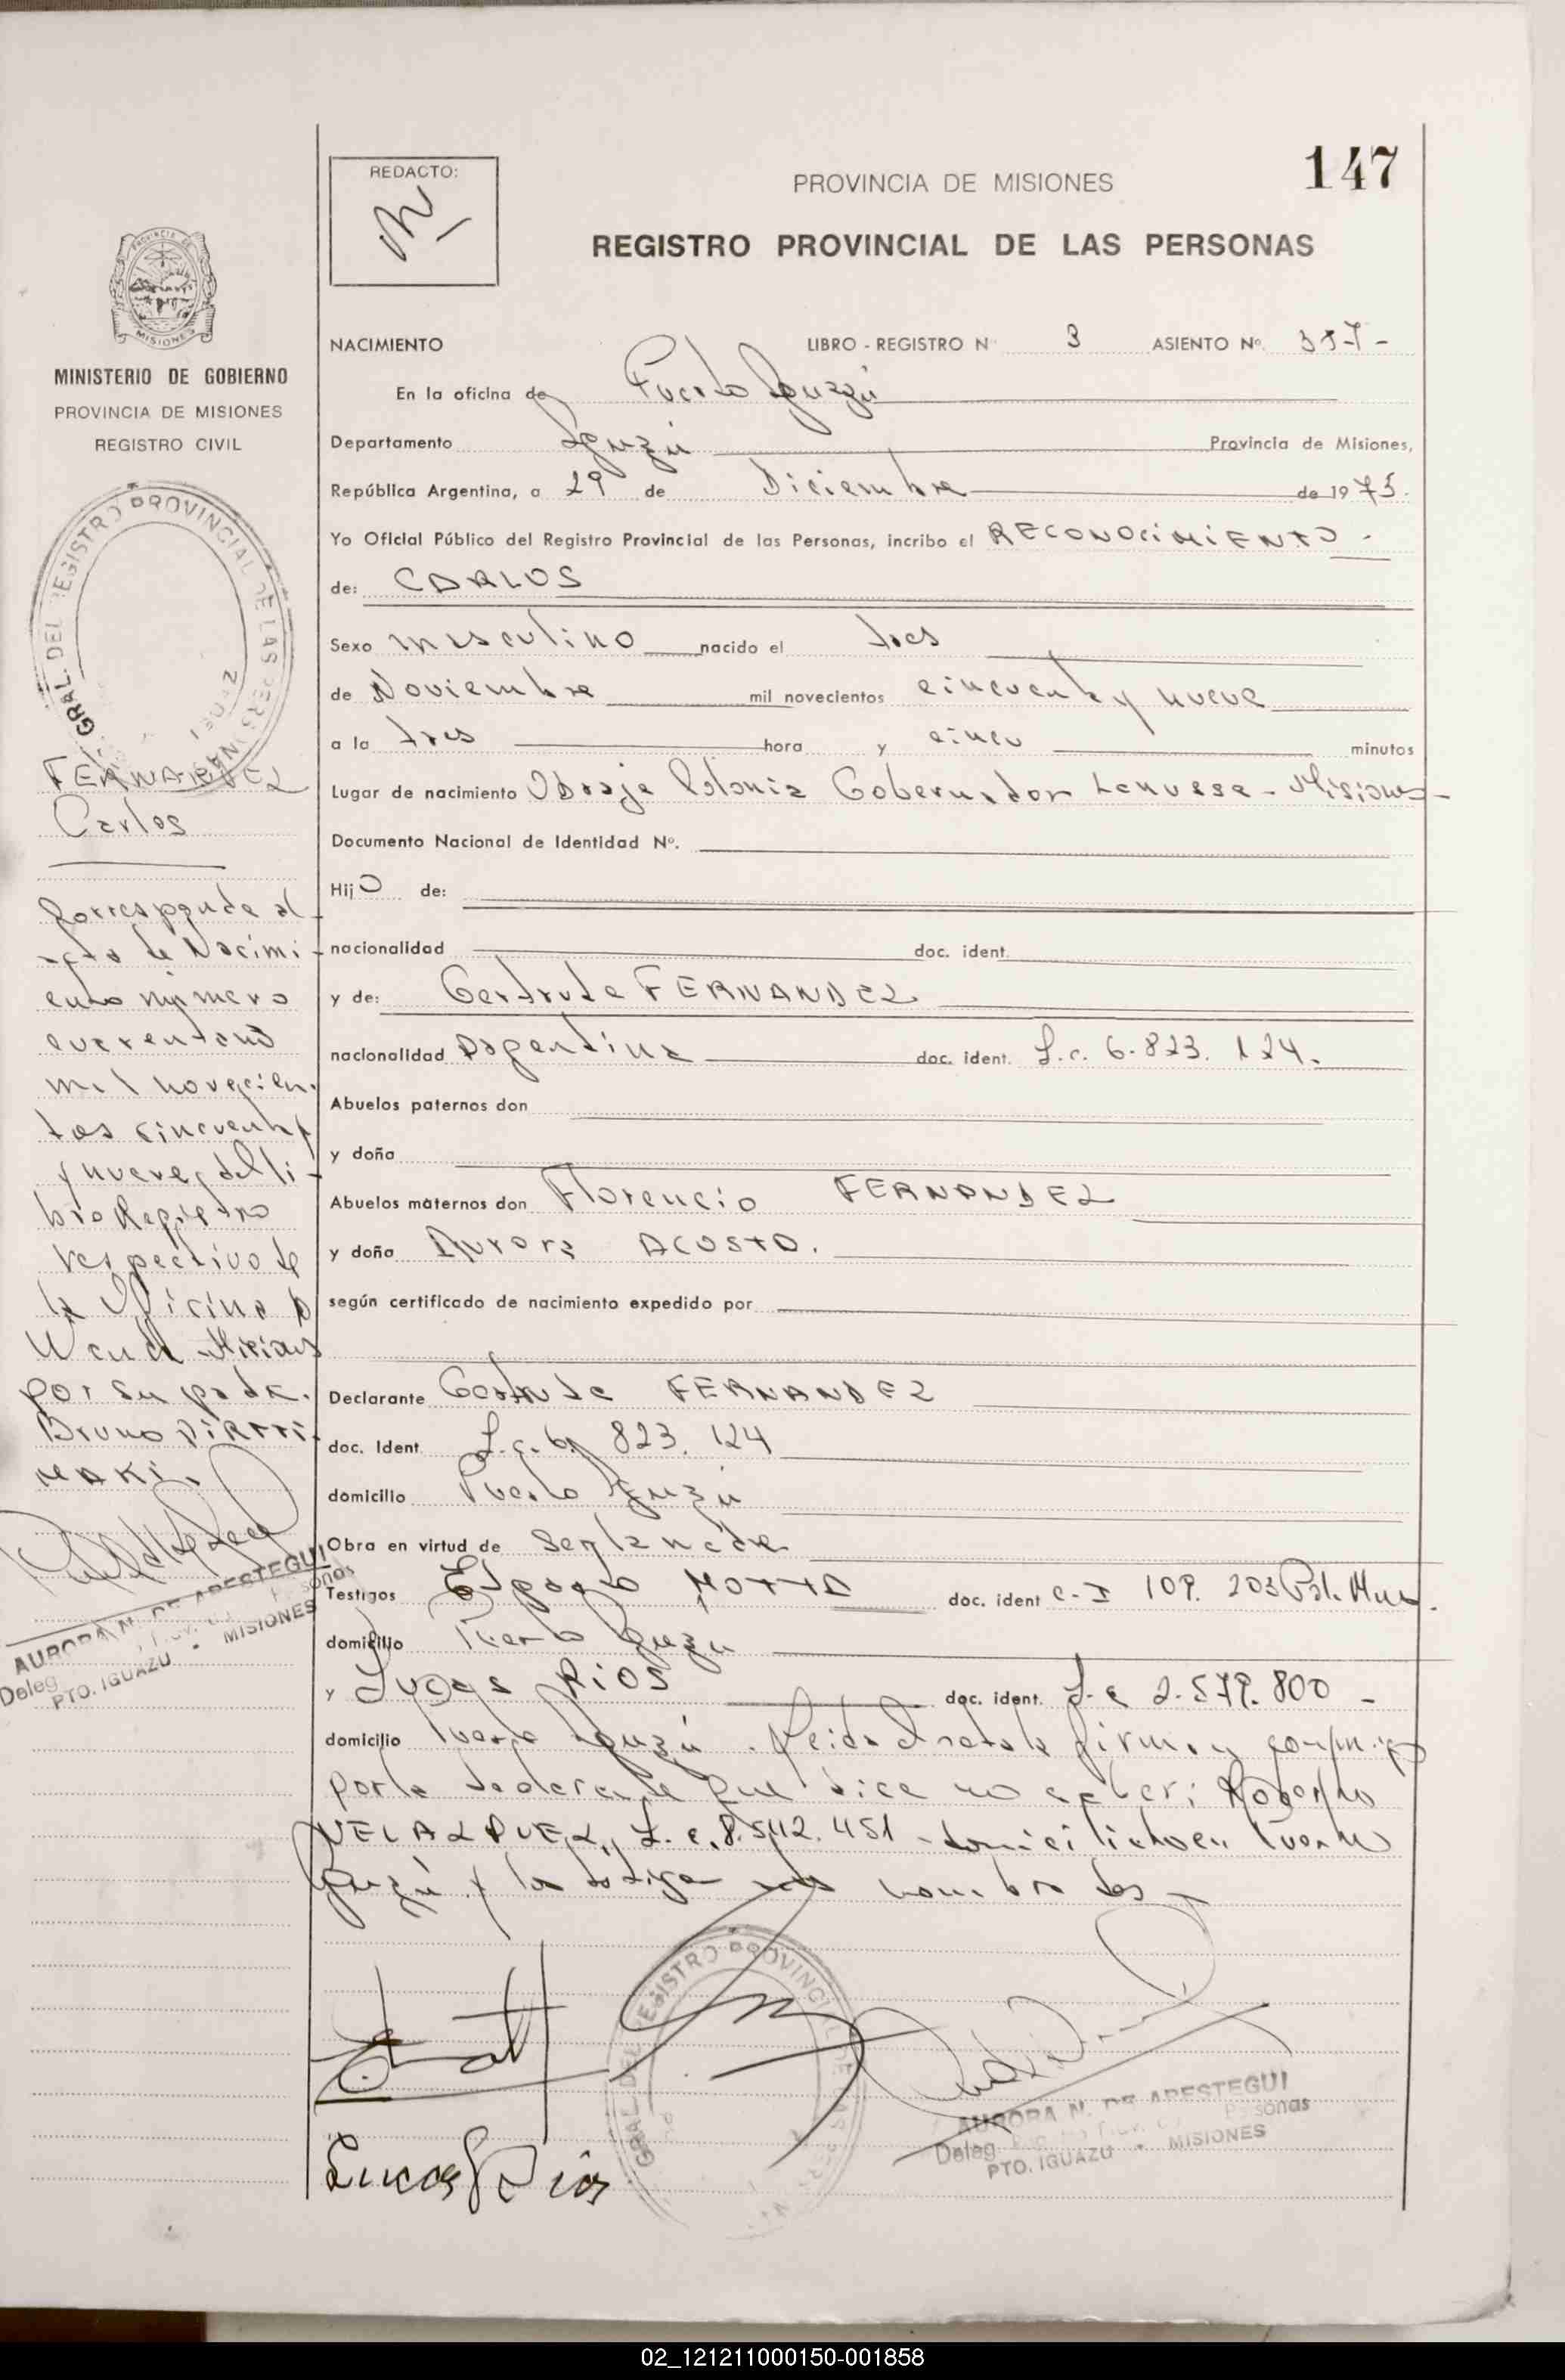 147
REDACTO:
PROVINCIA DE MISIONES
REGISTRO PROVINCIAL DE LAS PERSONAS
PROVINCIA DE
MISIONES
MINISTERIO DE GOBIERNO
PROVINCIA DE MISIONES
REGISTRO CIVIL
GRAL. DEL REGISTRO PROVINCIAL DE LAS PERSONAS
FERNANDEZ
Carlos
Corresponde al
acta de Nacimi
ento número
cuarenta
mil novecien
tos cincuenta
y nueve, del li
bro Registro
respectivo de
la Oficina de
Wanda Misiones
por su padre
Bruno PIRTTI
MAKI.
AURORA N. DE ARESTEGUI
Deleg. Personas
PTO. IGUAZU - MISIONES
NACIMIENTO LIBRO - REGISTRO Nº 3 ASIENTO Nº.
En la oficina de Puerto Iguazú
Departamento Iguazú Provincia de Misiones,
República Argentina, a 29 de Diciembre de 1975.
Yo Oficial Público del Registro Provincial de las Personas, incribo el RECONOCIMIENTO -
de: CARLOS
Sexo masculino nacido el tres
de Noviembre mil novecientos cincuenta y nueve
a la tres hora y cinco minutos
Lugar de nacimiento Obraje Colonia Gobernador Lanusse - Misiones -
Documento Nacional de Identidad Nº.
Hijo de:
nacionalidad doc. ident.
y de: Gertrude FERNANDEZ
nacionalidad Argentina doc. ident. L.c. 6.823.124.
Abuelos paternos don
y doña
Abuelos maternos don Florencio FERNANDEZ
y doña Aurora ACOSTA.
según certificado de nacimiento expedido por
Declarante Gertrude FERNANDEZ
doc. Ident. L.c. 6. 823. 124
domicilio Puerto Iguazú
Obra en virtud de ser la madre
Testigos MOTTA doc. ident C.I 109. 203 Pol. Mnes.
domicilio Puerto Iguazú
y Lucas RIOS doc. ident. L.e 2.579.800 -
domicilio Puerto Iguazú. Leida el acta la firman conmigo
por la declarante que dice no saber: Rodolfo
VELAZQUEZ, L.e. 8.542.451 - domiciliado en Puerto
Iguazú y los testigos nombrados -
GRAL. DEL REGISTRO PROVINCIAL DE LAS PERSONAS
Lucas Rios
AURORA N. DE ARESTEGUI
Deleg. Personas
PTO. IGUAZU - MISIONES
02_121211000150-001858